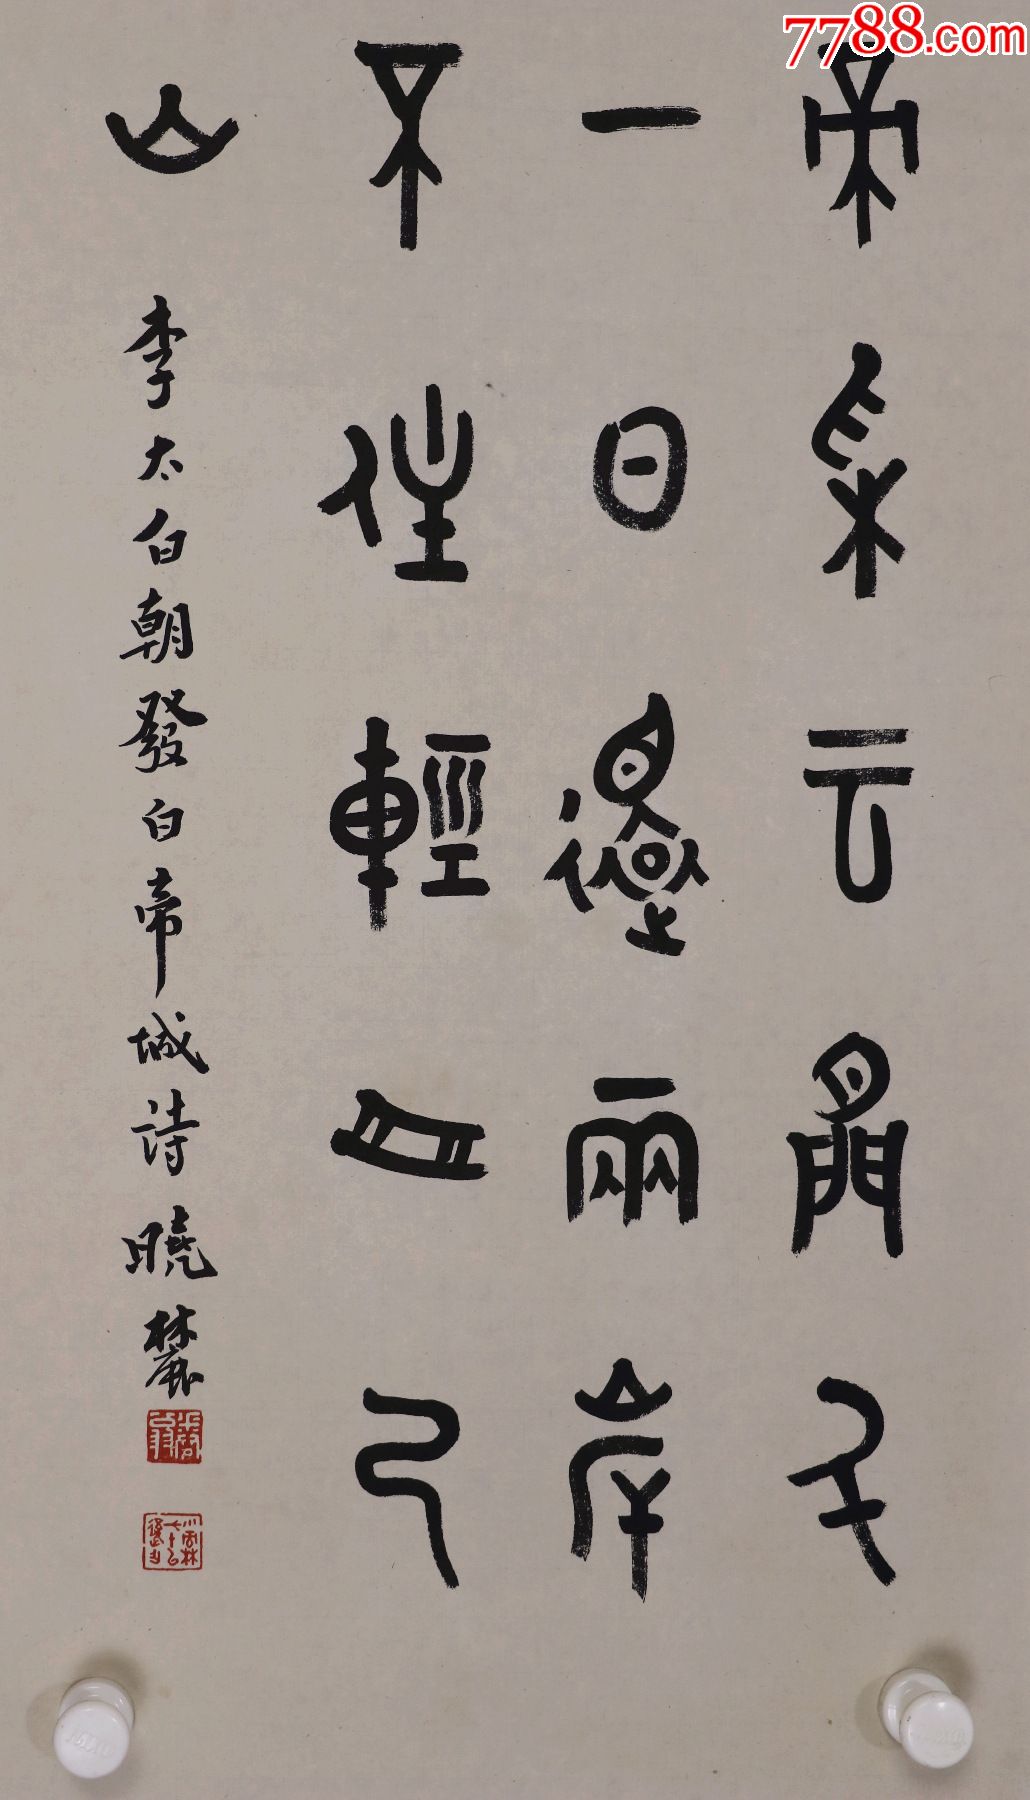 7788.com
帝采云間千
一日還兩岸
不住輕舟已
山
李太白朝發白帝城詩曉麓